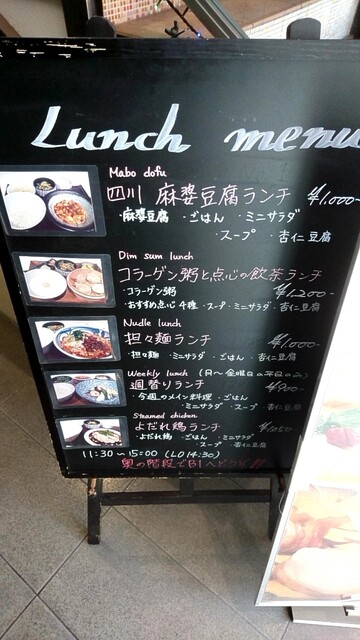 Lunch menu
Mabo dofu
四川 麻婆豆腐ランチ ¥1,000-
・麻婆豆腐 ・ごはん ・ミニサラダ
・スープ ・杏仁豆腐
Dim sum lunch
コラーゲン粥と点心の飲茶ランチ
・コラーゲン粥 ¥1,200-
・おすすめ点心4種 ・スープ ・ミニサラダ ・杏仁豆腐
Nudle lunch
担々麺ランチ ¥1,000-
・担々麺 ・ミニサラダ ・ごはん ・杏仁豆腐
Weekly lunch (月〜金曜日の平日のみ)
週替りランチ ¥900-
・今週のメイン料理 ・ごはん
・ミニサラダ ・スープ ・杏仁豆腐
Steamed chicken
よだれ鶏ランチ ¥1050-
・よだれ鶏 ・ごはん ・ミニサラダ
・スープ ・杏仁豆腐
11:30〜15:00 (LO 14:30)
奥の階段でB1へどうぞ!!